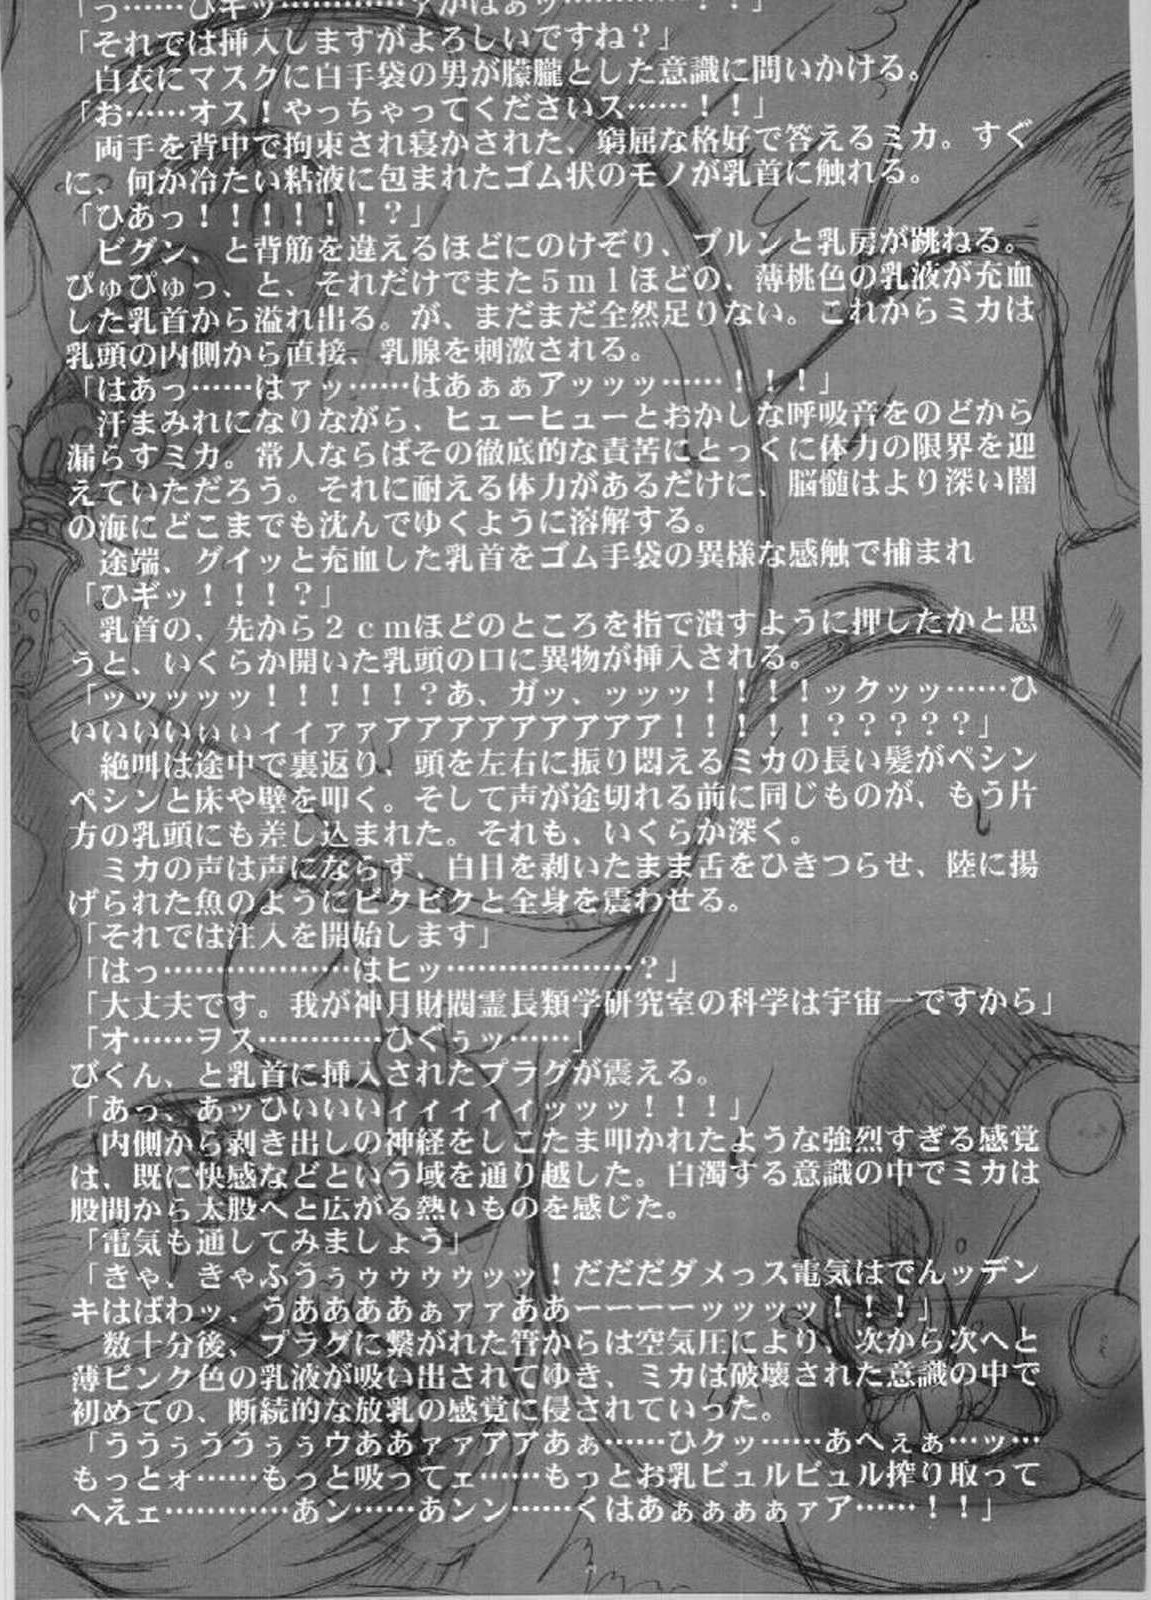 「それでは挿入しますがよろしいですね？」
白衣にマスクに白手袋の男が朦朧とした意識に問いかける。
「お……オス！やっちゃってくださいス……！！」
両手を背中で拘束され寝かされた、窮屈な格好で答えるミカ。すぐ
に、何か冷たい粘液に包まれたゴム状のモノが乳首に触れる。
「ひあっ！！！！！！！？」
ビグン、と背筋を違えるほどにのけぞり、ブルンと乳房が跳ねる。
ぴゅぴゅっ、と、それだけでまた５ｍｌほどの、薄桃色の乳液が充血
した乳首から溢れ出る。が、まだまだ全然足りない。これからミカは
乳頭の内側から直接、乳腺を刺激される。
「はあっ……はァッ……はあぁぁアッッッ……！！！」
汗まみれになりながら、ヒューヒューとおかしな呼吸音をのどから
漏らすミカ。常人ならばその徹底的な責苦にとっくに体力の限界を迎
えていただろう。それに耐える体力があるだけに、脳髄はより深い闇
の海にどこまでも沈んでゆくように溶解する。
途端、グイッと充血した乳首をゴム手袋の異様な感触で捕まれ
「ひギッ！！！？」
乳首の、先から２ｃｍほどのところを指で潰すように押したかと思
うと、いくらか開いた乳頭の口に異物が挿入される。
「ッッッッッ！！！！！？あ、ガッ、ッッッ！！！！ックッッ……ひ
いいいいぃぃィィァァアアアアアアアアア！！！！！？？？？？」
絶叫は途中で裏返り、頭を左右に振り悶えるミカの長い髪がペシン
ペシンと床や壁を叩く。そして声が途切れる前に同じものが、もう片
方の乳頭にも差し込まれた。それも、いくらか深く。
ミカの声は声にならず、白目を剥いたまま舌をひきつらせ、陸に揚
げられた魚のようにビクビクと全身を震わせる。
「それでは注入を開始します」
「はっ…………………はヒッ…………………？」
「大丈夫です。我が神月財閥霊長類学研究室の科学は宇宙一ですから」
「オ……ヲス…………ひぐぅッ……」
びくん、と乳首に挿入されたプラグが震える。
「あっ、あッひいいいィィィィィッッッ！！！」
内側から剥き出しの神経をしこたま叩かれたような強烈すぎる感覚
は、既に快感などという域を通り越した。白濁する意識の中でミカは
股間から太股へと広がる熱いものを感じた。
「電気も通してみましょう」
「きゃ、きゃふうぅゥゥゥゥッッ！だだだダメっス電気はでんッデン
キはばわッ、うああああぁァァああーーーーッッッッ！！！」
数十分後、プラグに繋がれた管からは空気圧により、次から次へと
薄ピンク色の乳液が吸い出されてゆき、ミカは破壊された意識の中で
初めての、断続的な放乳の感覚に侵されていった。
「ううぅううぅぅウああァァアアあぁ……ひクッ……あへぇぁ…ッ…
もっとォ……もっと吸ってェ……もっとお乳ビュルビュル搾り取って
へえェ…………あン……あンン……くはあぁぁぁぁァア……！！」